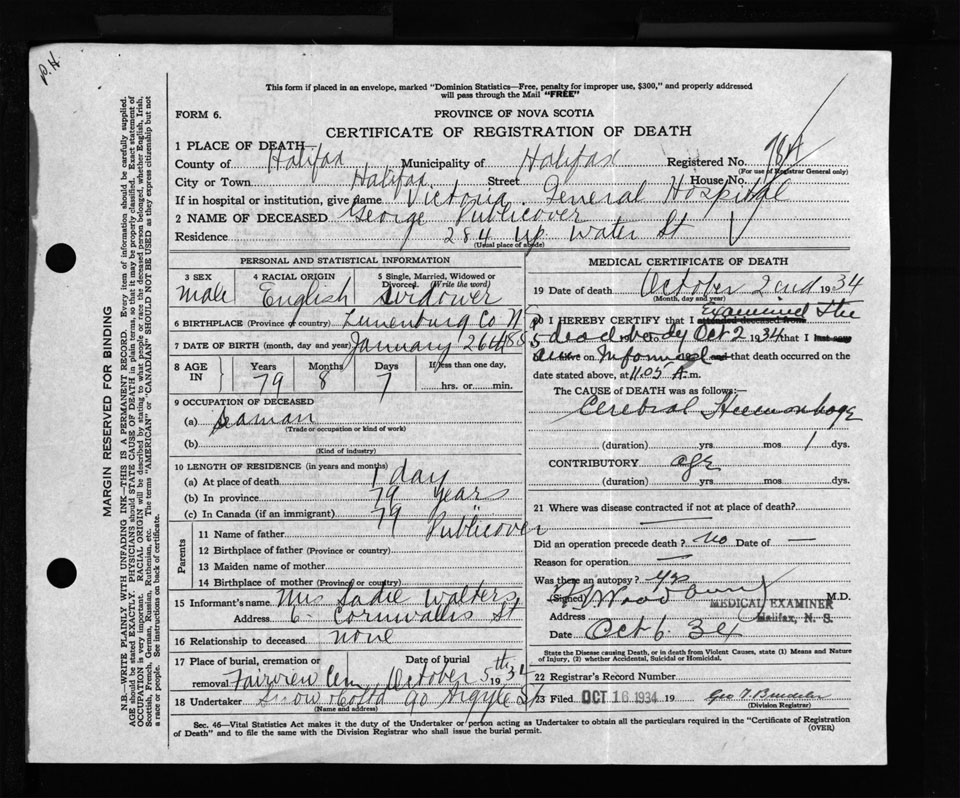 P.H.
This form if placed in an envelope, marked "Dominion Statistics—Free, penalty for improper use, $300," and properly addressed
will pass through the Mail "FREE"
FORM 6.
PROVINCE OF NOVA SCOTIA
CERTIFICATE OF REGISTRATION OF DEATH
1 PLACE OF DEATH—
County of Halifax Municipality of Halifax Registered No.
(For use of Registrar General only)
City or Town Halifax Street House No.
If in hospital or institution, give name Victoria General Hospital
2 NAME OF DECEASED George Publicover
Residence 284 Up Water St
(Usual place of abode)
PERSONAL AND STATISTICAL INFORMATION
3 SEX 4 RACIAL ORIGIN 5 Single, Married, Widowed or
Divorced. (Write the word)
Male English Widower
6 BIRTHPLACE (Province or country) Lunenburg Co N
7 DATE OF BIRTH (month, day and year) January 26th 185
8 AGE IN Years Months Days If less than one day,
79 8 7 hrs. or min.
9 OCCUPATION OF DECEASED
(a) Seaman
(Trade or occupation or kind of work)
(b)
(Kind of industry)
10 LENGTH OF RESIDENCE (in years and months)
(a) At place of death 1 day
(b) In province 79 years
(c) In Canada (if an immigrant) 79 "
Parents
11 Name of father Publicover
12 Birthplace of father (Province or country)
13 Maiden name of mother
14 Birthplace of mother (Province or country)
15 Informant's name Mrs Sadie Walters
Address 6 Cornwallis St
16 Relationship to deceased none
17 Place of burial, cremation or Date of burial
removal Fairview Cem October 5th 1934
18 Undertaker Snow & Co Ltd 90 Argyle St
(Name and address)
MEDICAL CERTIFICATE OF DEATH
19 Date of death October 2nd 1934
(Month, day and year)
20 I HEREBY CERTIFY that I attended deceased from Examined the
dead body Oct 2 1934 that I last saw
alive on Informed and that death occurred on
date stated above, at 11.05 A.m.
The CAUSE of DEATH was as follows:—
Cerebral Heemorhage
(duration) yrs. mos 1 dys.
CONTRIBUTORY age
(duration) yrs. mos. dys.
21 Where was disease contracted if not at place of death?
Did an operation precede death? no Date of —
Reason for operation —
Was there an autopsy? yes
(Signed) M.D.
MEDICAL EXAMINER
Address Halifax, N. S.
Date Oct 6. 34
State the Disease causing Death, or in death from Violent Causes, state (1) Means and Nature
of Injury, (2) whether Accidental, Suicidal or Homicidal.
22 Registrar's Record Number
23 Filed OCT 16 1934 19
(Division Registrar)
Sec. 46—Vital Statistics Act makes it the duty of the Undertaker or person acting as Undertaker to obtain all the particulars required in the "Certificate of Registration
of Death" and to file the same with the Division Registrar who shall issue the burial permit.
(OVER)
MARGIN RESERVED FOR BINDING
N.B.—WRITE PLAINLY WITH UNFADING INK—THIS IS A PERMANENT RECORD. Every item of information should be carefully supplied.
AGE should be stated EXACTLY. PHYSICIANS should STATE CAUSE OF DEATH in plain terms, so that it may be properly classified. Exact statement of
OCCUPATION is very important. RACIAL ORIGIN will be described by stating to what people or race the deceased person belonged, whether English, Irish,
Scottish, French, German, Russian, Ruthenian, etc. The terms "AMERICAN" or "CANADIAN" SHOULD NOT BE USED as they express citizenship but not
a race or people. See instructions on back of certificate.